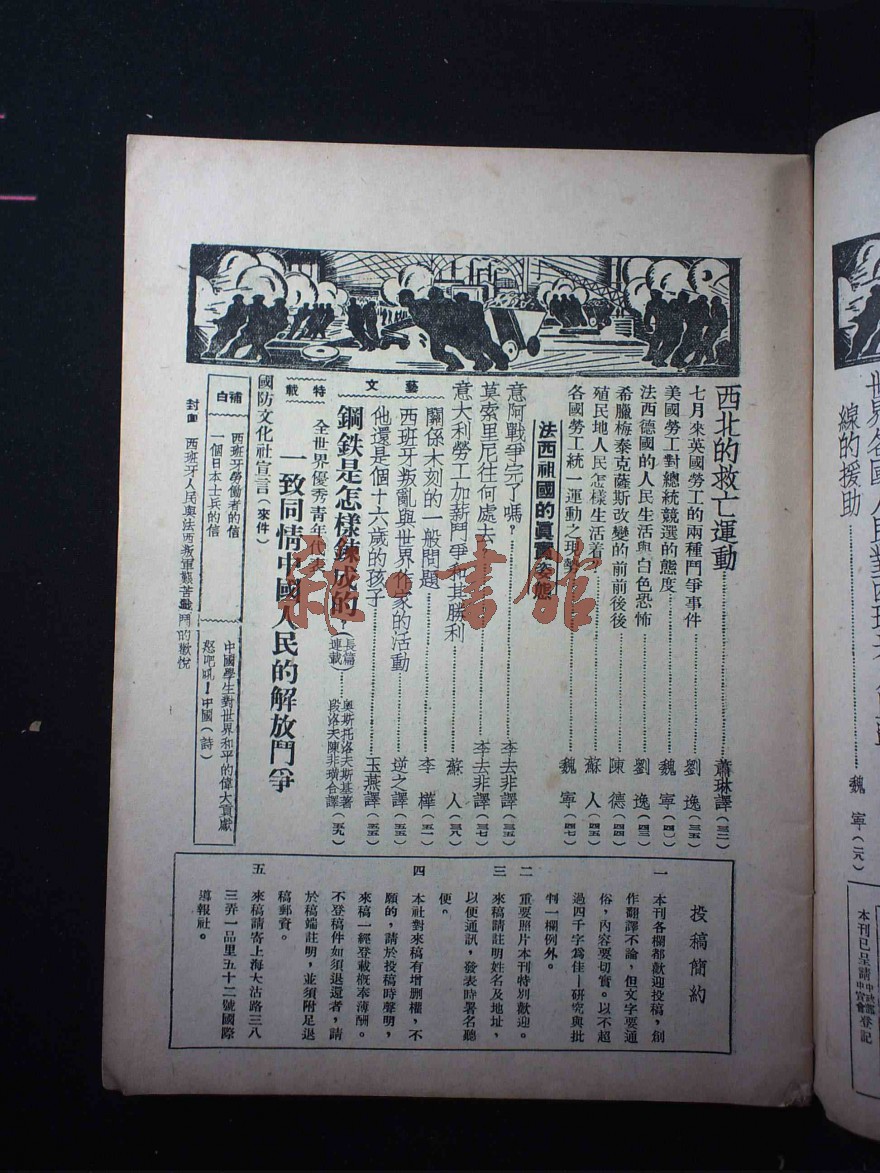 西北的救亡運動……蕭琳譯(三二)
七月來英國勞工的兩種鬥爭事件……劉逸(三五)
美國勞工對總統競選的態度……魏寧(四一)
法西德國的人民生活與白色恐怖……劉逸(四三)
希臘梅泰克薩斯改變的前前後後……陳德(四四)
殖民地人民怎樣生活着……蘇人(四五)
各國勞工統一運動之現勢……魏寧(四七)
法西祖國的眞實姿態
意阿戰爭完了嗎?……李去非譯(三五)
莫索里尼往何處去……李去非譯(三七)
意大利勞工加薪鬥爭和其勝利……蘇人(三九)
文藝
關係木刻的一般問題……李樺(五一)
西班牙叛亂與世界作家的活動……逆之譯(五五)
他還是個十六歲的孩子……玉燕譯(五五)
鋼鉄是怎樣鍊成的(長篇連載)……奧斯托洛夫斯基著 段洛夫陳非璜合譯(五九)
特載
全世界優秀青年代表
一致同情中國人民的解放鬥爭
國防文化社宣言(來件)
補白
西班牙勞働者的信
一個日本士兵的信
中國學生對世界和平的偉大貢獻
怒吧吼!中國(詩)
封面 西班牙人民與法西叛軍艱苦戰鬥的歡悅
投稿簡約
一 本刊各欄都歡迎投稿,創
作翻譯不論,但文字要通
俗,內容要切實。以不超
過四千字爲佳—研究與批
判一欄例外。
二 重要照片本刊特別歡迎。
三 來稿請註明姓名及地址,
以便通訊,發表時署名聽
便。
四 本社對來稿有增删權,不
願的,請於投稿時聲明,
來稿一經登載概奉薄酬。
不登稿件如須退還者,請
於稿端註明,並須附足退
稿郵資。
五 來稿請寄上海大沽路三八
三弄一品里五十二號國際
導報社。
線的援助……魏寧(二八)
本刊已呈請中政部中宣會登記
雜·書館